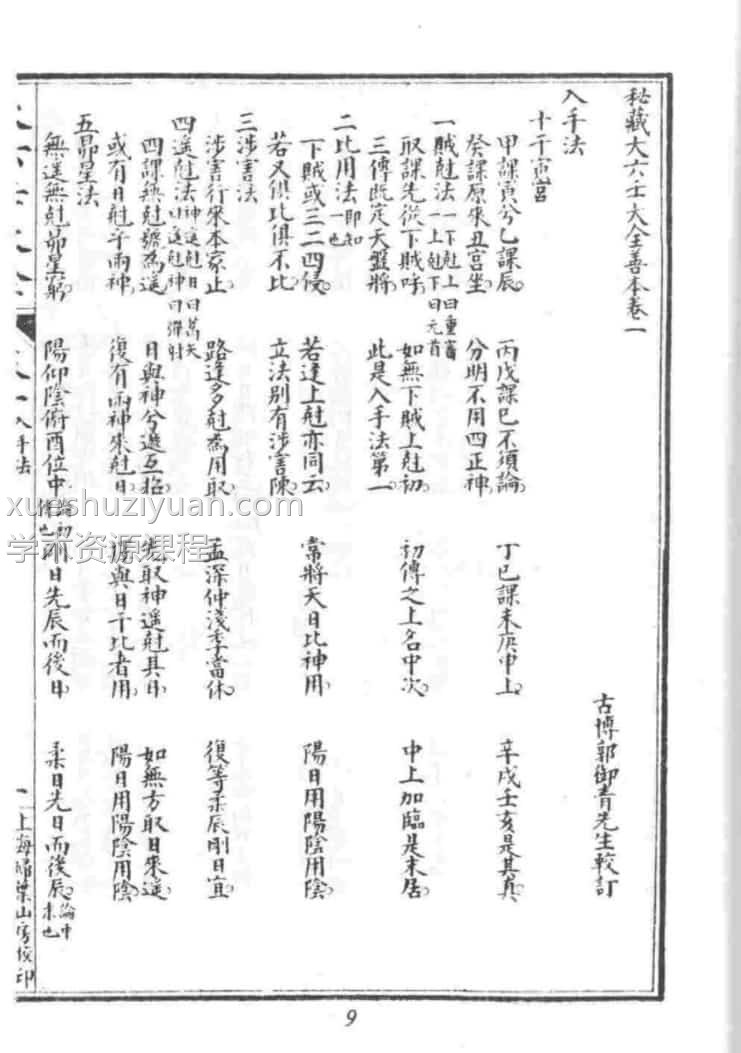 秘藏大六壬大全善本卷一
古博郭御青先生較訂
入手法
十干寅宮
甲課寅兮乙課辰 丙戊課巳不須論 丁己課未庚申上 辛戌壬亥是其真
癸課原來丑宮坐 分明不用四正神
一賊尅法 一下尅上曰重審 一上尅下曰元首
取課先從下賊呼 如無下賊上尅初 初傳之上名中次 中上加臨是末居
三傳既定天盤將 此是入手法第一
二比用法 即知一也
下賊或三二四侵 若逢上尅亦同云 常將天日比神用 陽日用陽陰用陰
若又俱比俱不比 立法別有涉害陳
三涉害法
涉害行來本家止 路逢多尅為用取 孟深仲淺季當休 復等柔辰剛日宜
四遙尅法 神遙尅日曰蒿矢 日遙尅神曰彈射
四課無尅號為遙 日與神兮遞互招 先取神遙尅其日 如無方取日來遙
或有日尅乎兩神 復有兩神來尅日 擇與日干比者用 陽日用陽陰用陰
五昴星法
無遙無尅昴星窮 陽仰陰俯酉位中 剛日先辰而後日 柔日先日而後辰 論中末也
入手法
上海掃葉山房校印
xueshuziyuan.com
学术资源课程
9